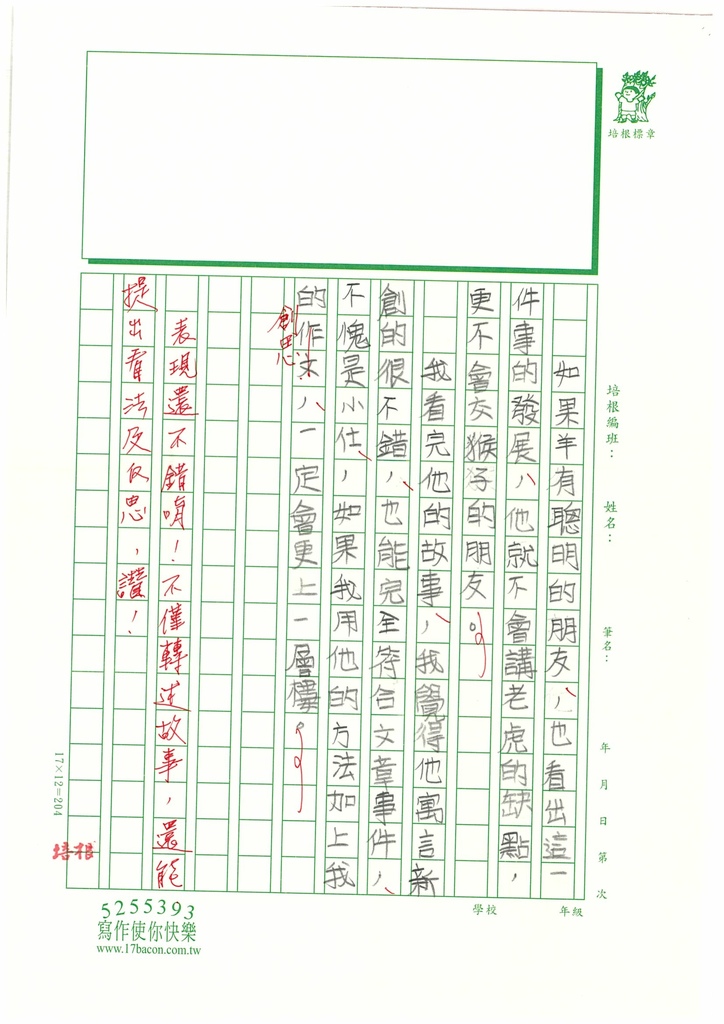 培根標章
培根編班：
姓名：
筆名：
年 月 日 第 次
學校
年級
如果羊有聰明的朋友，也看出這一
件事的發展，他就不會講老虎的缺點，
更不會交猴子的朋友。
我看完他的故事，我覺得他寓言新
創的很不錯，也能完全符合文章事件，
不愧是小仕，如果我用他的方法加上我
的作文，一定會更上一層樓。
創思
表現還不錯唷！不僅轉述故事，還能
提出看法及反思，讚！
17×12=204
培根
5255393
寫作使你快樂
www.17bacon.com.tw